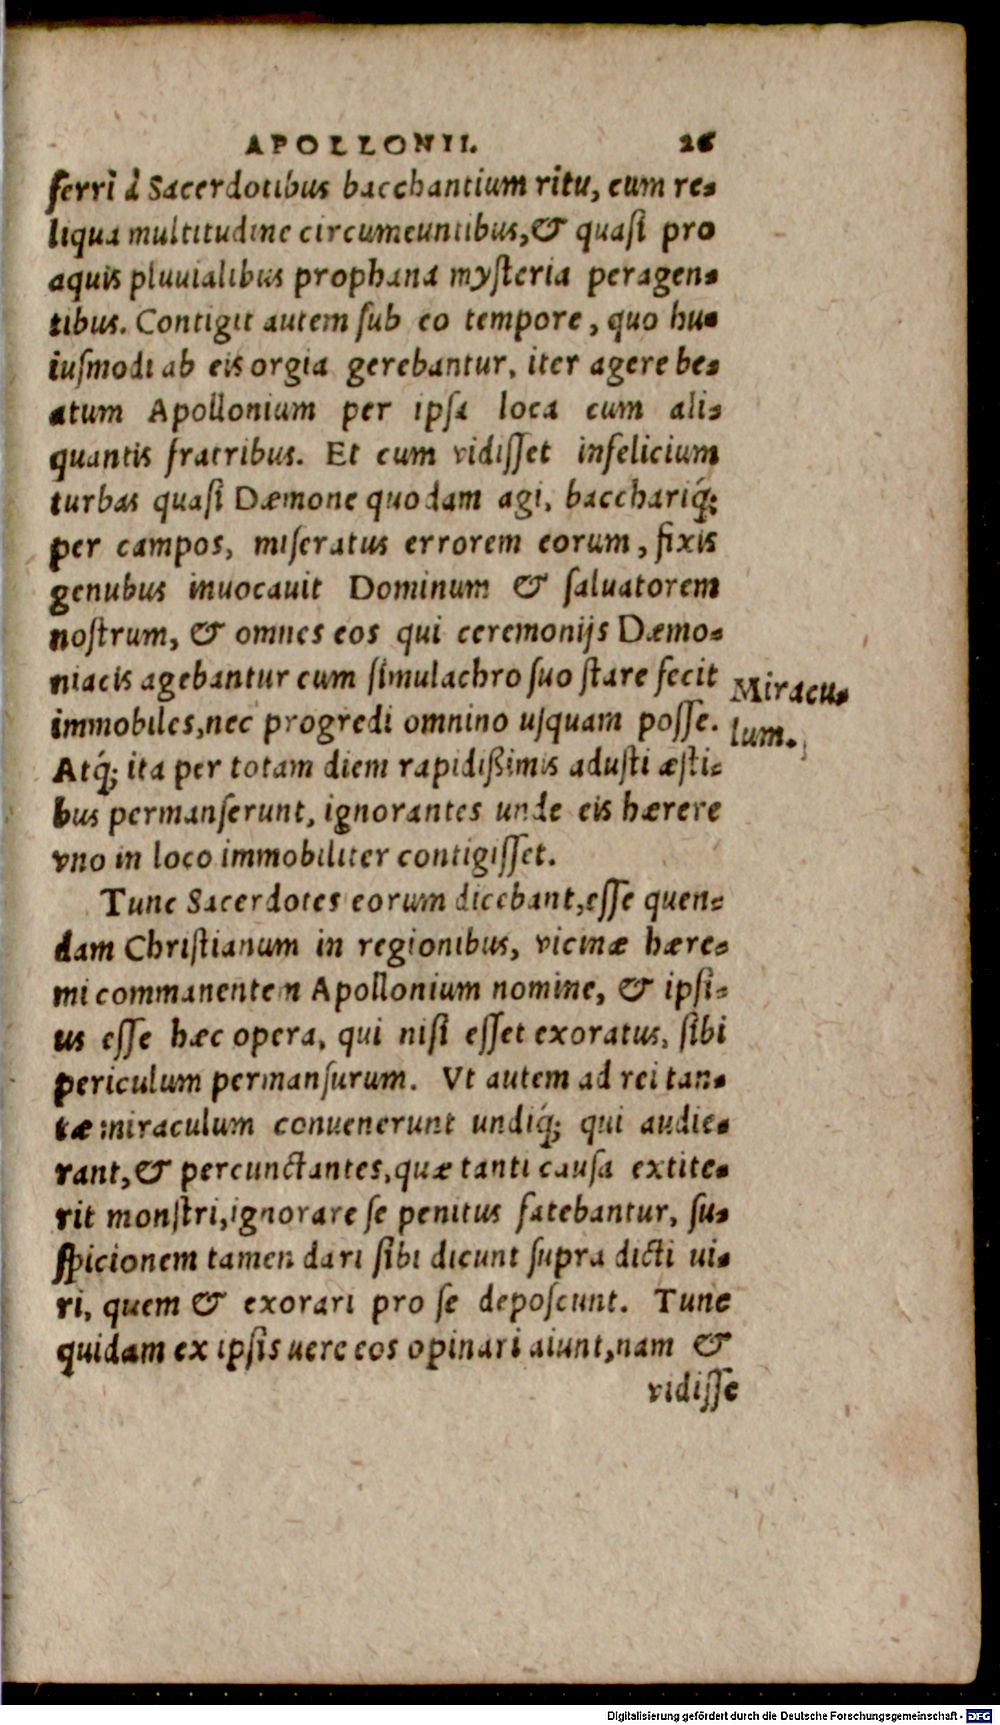 APOLLONII. 26
ferri à Sacerdotibus bacchantium ritu, cum re-
liqua multitudine circumeuntibus, & quasi pro
aquis pluuialibus prophana mysteria peragen-
tibus. Contigit autem sub eo tempore, quo hu-
iusmodi ab eis orgia gerebantur, iter agere be-
atum Apollonium per ipsa loca cum ali-
quantis fratribus. Et cum vidisset infelicium
turbas quasi Dæmone quodam agi, bacchariq́;
per campos, miseratus errorem eorum, fixis
genubus inuocauit Dominum & saluatorem
nostrum, & omnes eos qui ceremonijs Dæmo-
niacis agebantur cum simulachro suo stare fecit
immobiles, nec progredi omnino usquam posse.
Miracu-
lum.
Atq́; ita per totam diem rapidißimis adusti æsti-
bus permanserunt, ignorantes unde eis hærere
vno in loco immobiliter contigisset.
Tunc Sacerdotes eorum dicebant, esse quen-
dam Christianum in regionibus, vicinæ hære-
mi commanentem Apollonium nomine, & ipsi-
us esse hæc opera, qui nisi esset exoratus, sibi
periculum permansurum. Vt autem ad rei tan-
tæ miraculum conuenerunt undiq́; qui audie-
rant, & percunctantes, quæ tanti causa extite-
rit monstri, ignorare se penitus fatebantur, su-
spicionem tamen dari sibi dicunt supra dicti ui-
ri, quem & exorari pro se deposcunt. Tunc
quidam ex ipsis uere eos opinari aiunt, nam &
vidisse
Digitalisierung gefördert durch die Deutsche Forschungsgemeinschaft - DFG